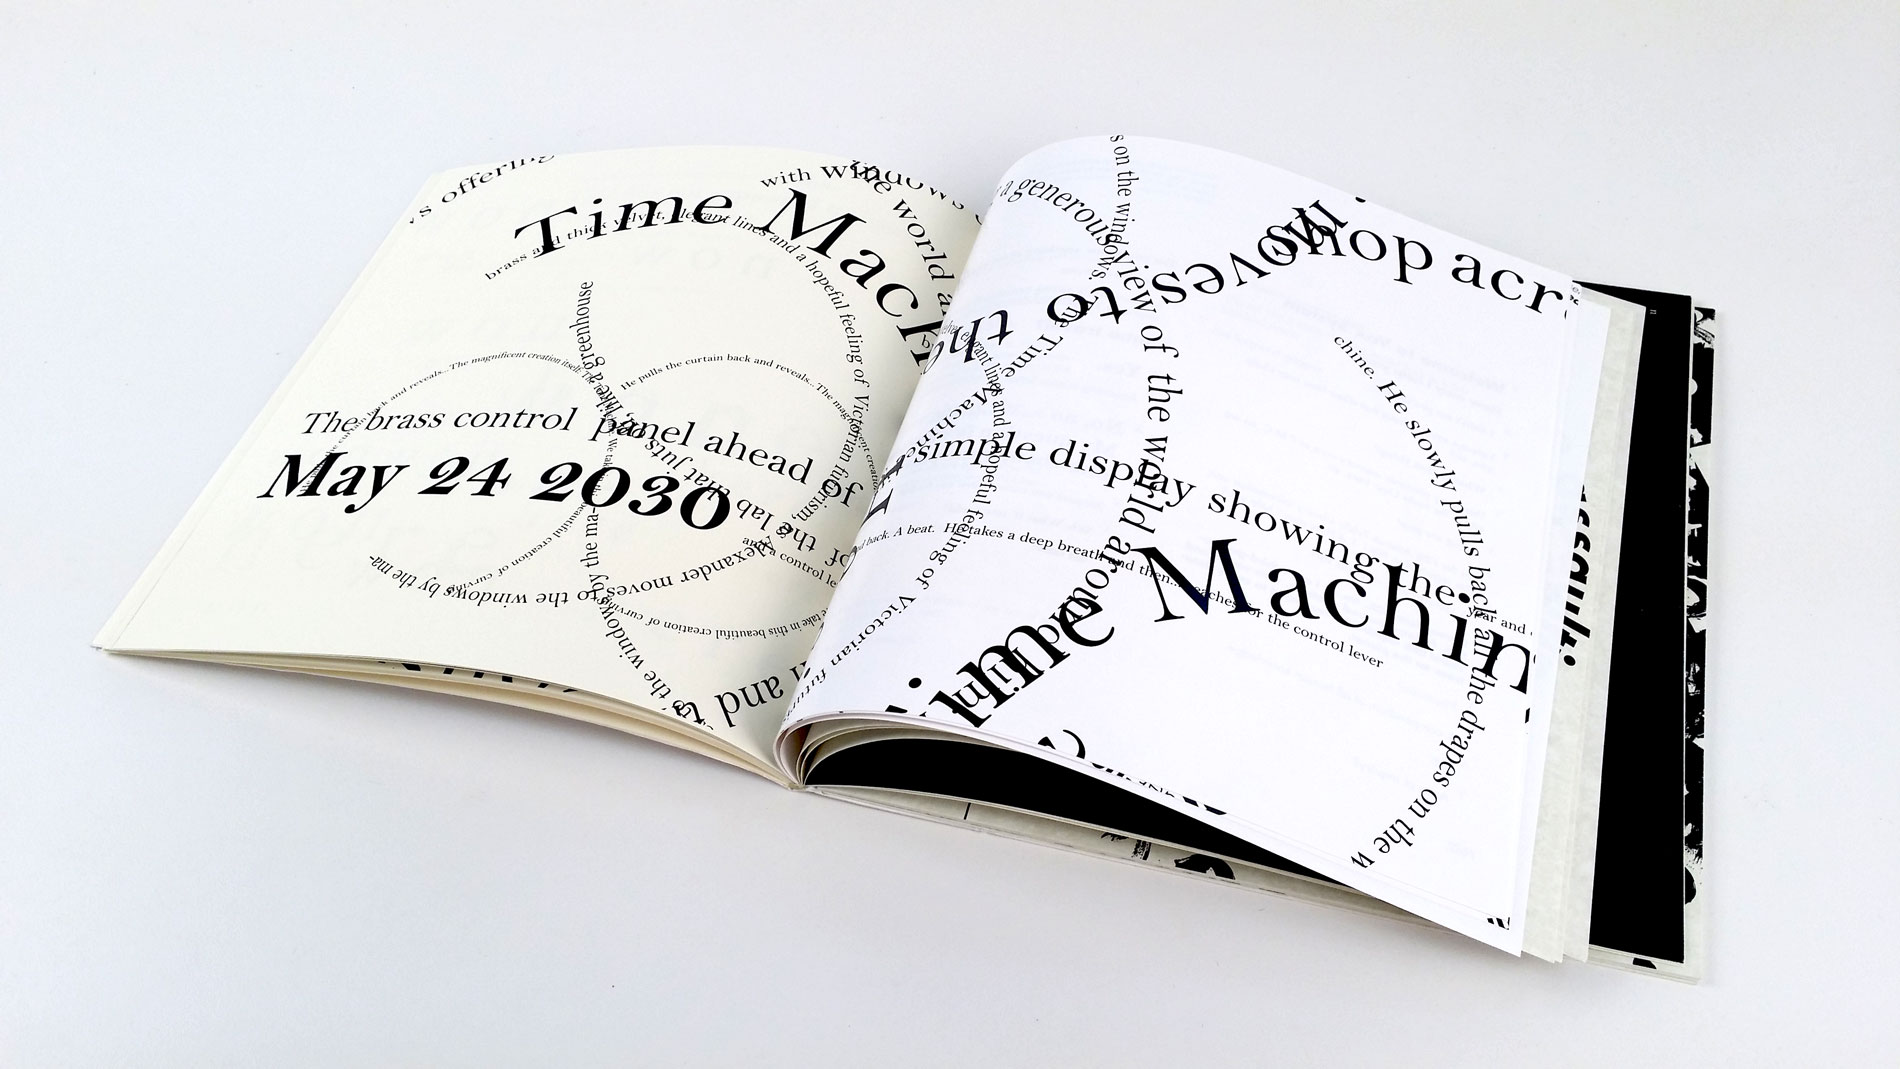 s offering
with wine
windows
the world a
Time Mach
brass and thick velvet, elegant lines and a hopeful feeling of Victorian futurism,
like a greenhouse
back and reveals...The magnificent creation itself:
He pulls the curtain back and reveals...The magnificent creation
The brass control panel ahead of
May 24 2030
of the lab that juts
and a control le
Alexander moves to the windows by the ma-
beautiful creation of curving
take in this beautiful creation of curving
to the windows by the ma-
and
s on the windows. The Time Machine
a generous view of the world around
moves to the
shop acr
velvet, elegant lines and a hopeful feeling of Victorian futu
chine. He slowly pulls back all the drapes on the w
simple display showing the
year and
back. A beat. He takes a deep breath and then... reaches for the control lever
ime Machin